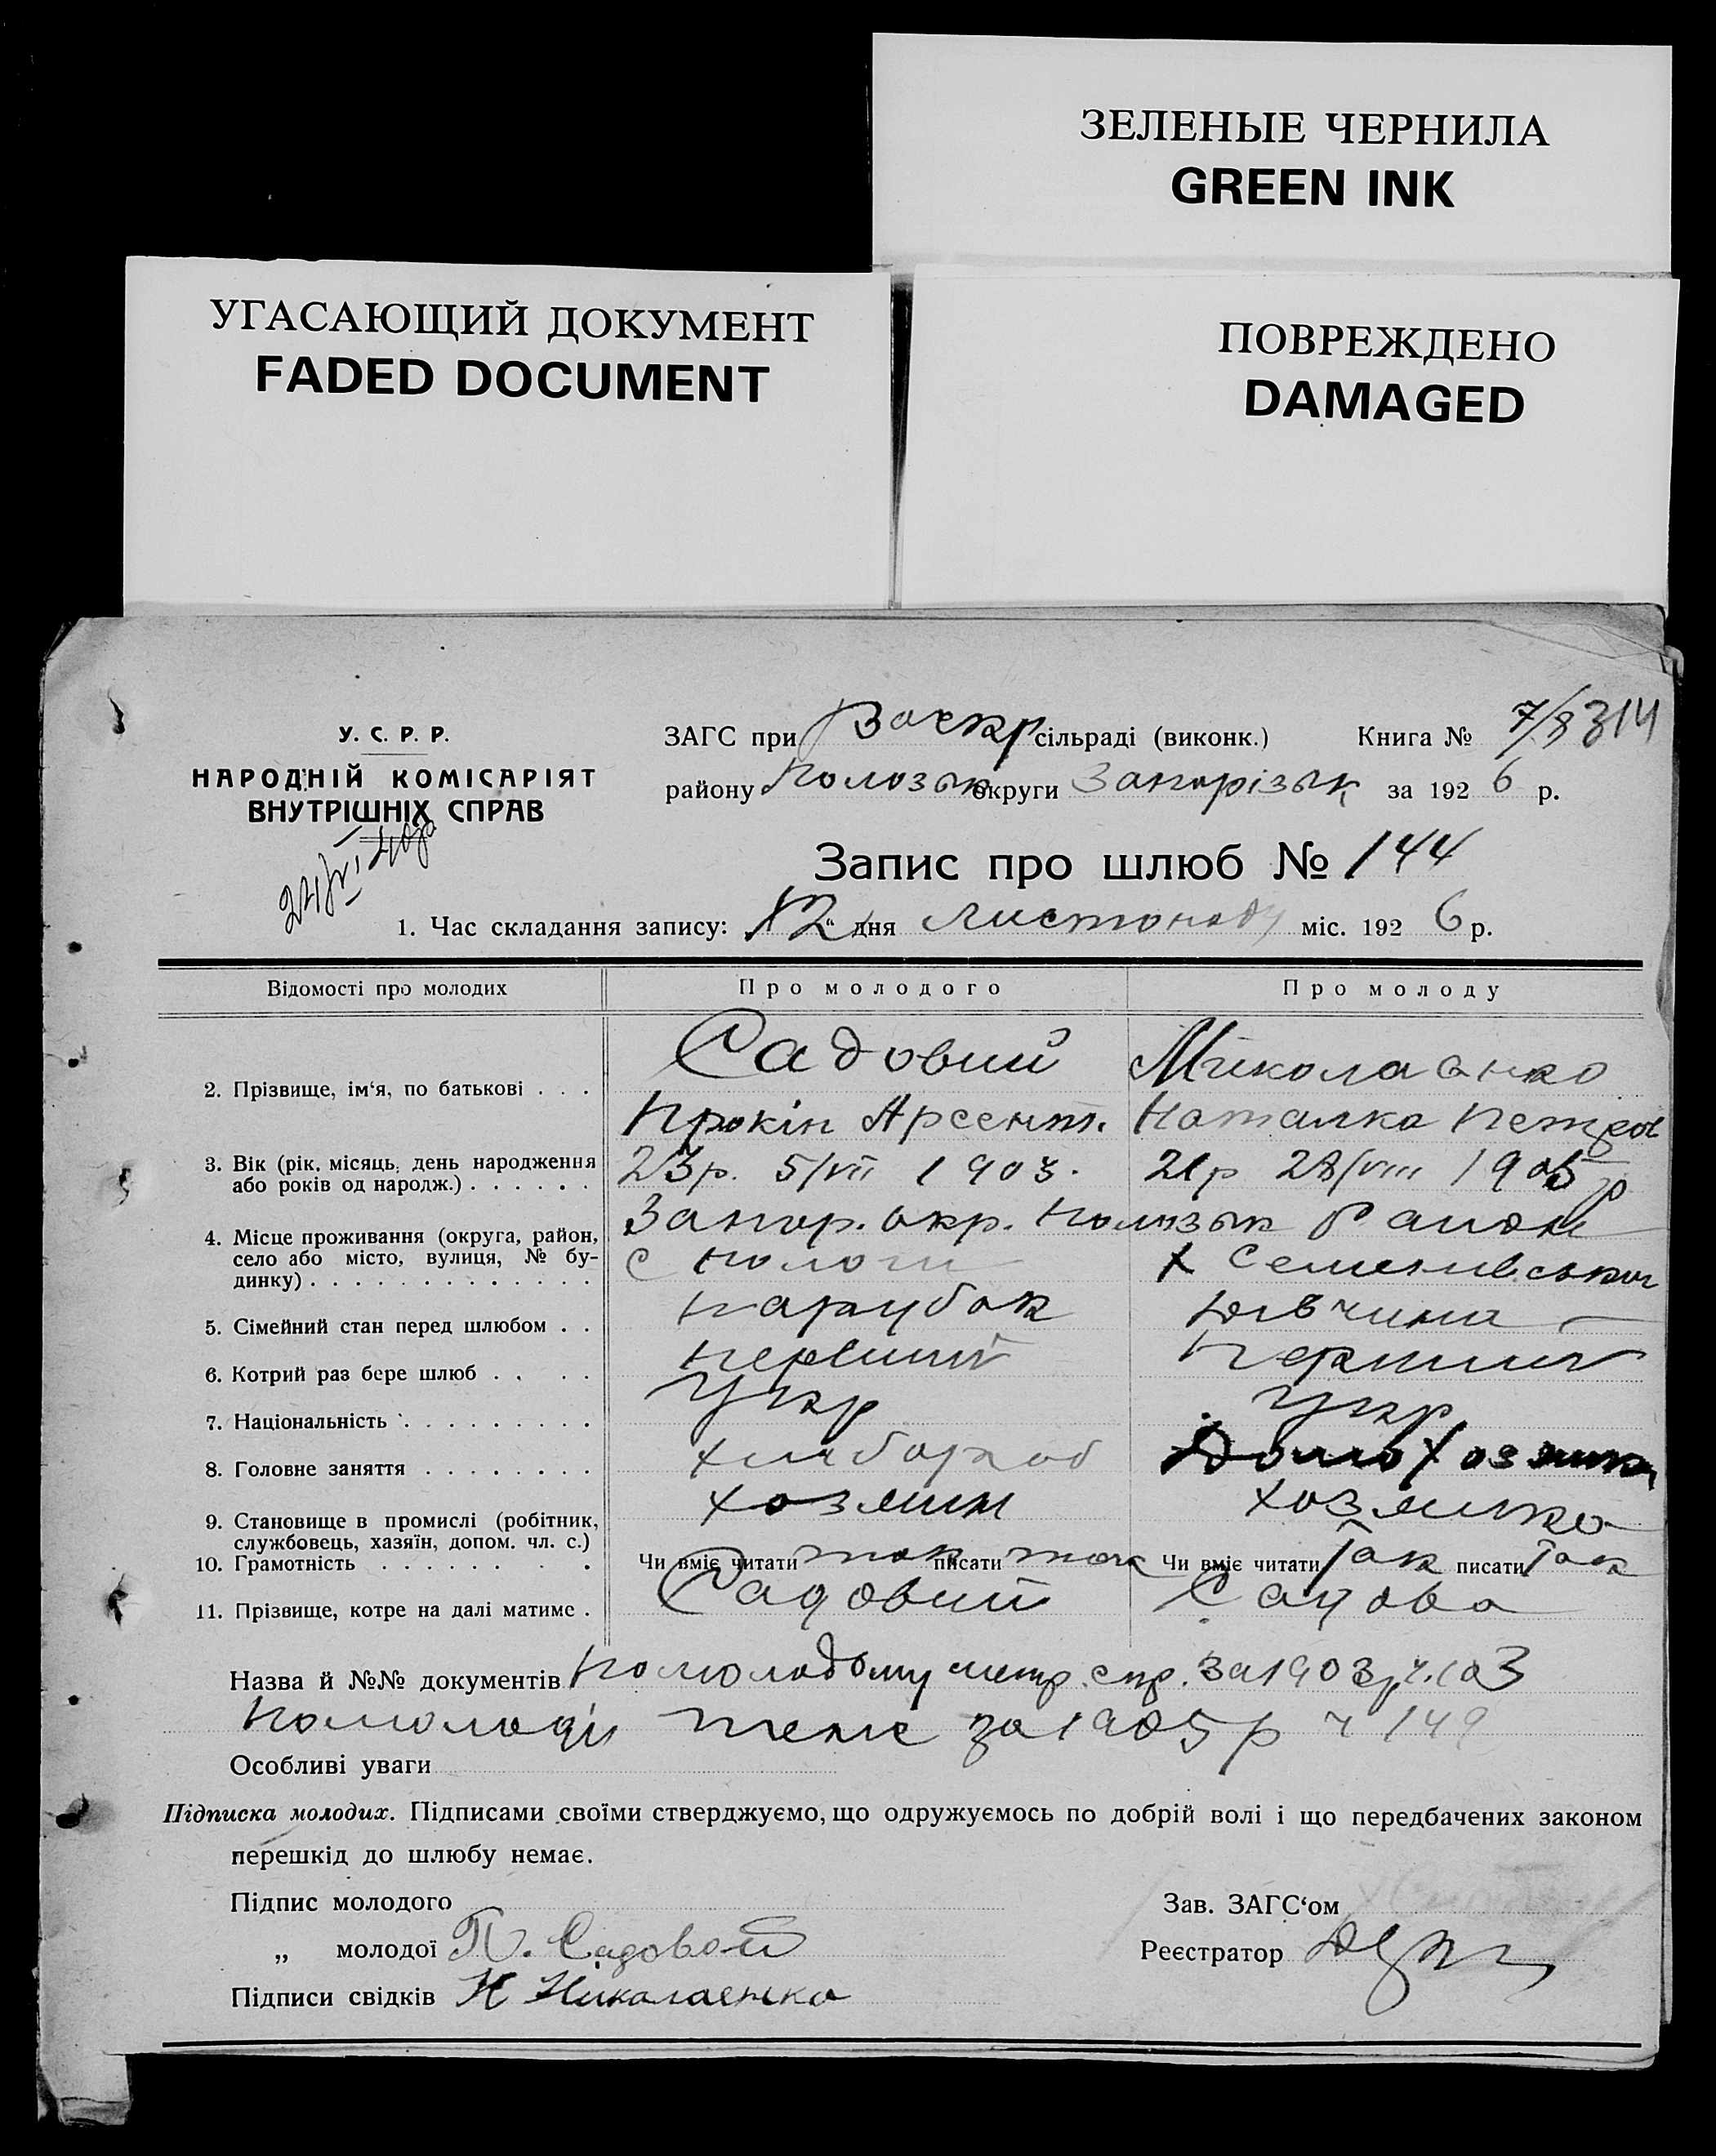 ЗЕЛЕНЫЕ ЧЕРНИЛА
GREEN INK
УГАСАЮЩИЙ ДОКУМЕНТ
FADED DOCUMENT
ПОВРЕЖДЕНО
DAMAGED
У. С. Р. Р.
НАРОДНІЙ КОМІСАРІЯТ
ВНУТРІШНІХ СПРАВ
ЗАГС при сільраді (виконк.) Книга №
району округи Запорізьк за 1926 р.
Запис про шлюб № 144
1. Час складання запису: 12 дня листопаду міс. 1926 р.
Відомості про молодих Про молодого Про молоду
2. Прізвище, ім‘я, по батькові . . . Садовий Миколаєнко
Прокіп Арсент. Наталка Петров
3. Вік (рік, місяць, день народження або років од народж.) . . . . . . 23р. 5/VII 1903. 21р 28/VIII 1905 р
4. Місце проживання (округа, район, село або місто, вулиця, № будинку) . . . . . . . . . . . . . Запор. окр. район
с Пологи х
5. Сімейний стан перед шлюбом . . парубок дівчина
6. Котрий раз бере шлюб . . . . первший перший
7. Національність . . . . . . . . . Укр Укр
8. Головне заняття . . . . . . . . хлібороб
9. Становище в промислі (робітник, службовець, хазяїн, допом. чл. с.) хозяин хозяйка
10. Грамотність . . . . . . . . Чи вміє читати так писати так Чи вміє читати так писати так
11. Прізвище, котре на далі матиме . Садовий Садова
Назва й №№ документів По молодому метр. спр. за 1903р ч. 103
По молодій теж за 1905р ч 149
Особливі уваги
Підписка молодих. Підписами своїми стверджуємо, що одружуємось по добрій волі і що передбачених законом
перешкід до шлюбу немає.
Підпис молодого Зав. ЗАГС‘ом
„ молодої П. Садовой Реєстратор
Підписи свідків Н Николаенко